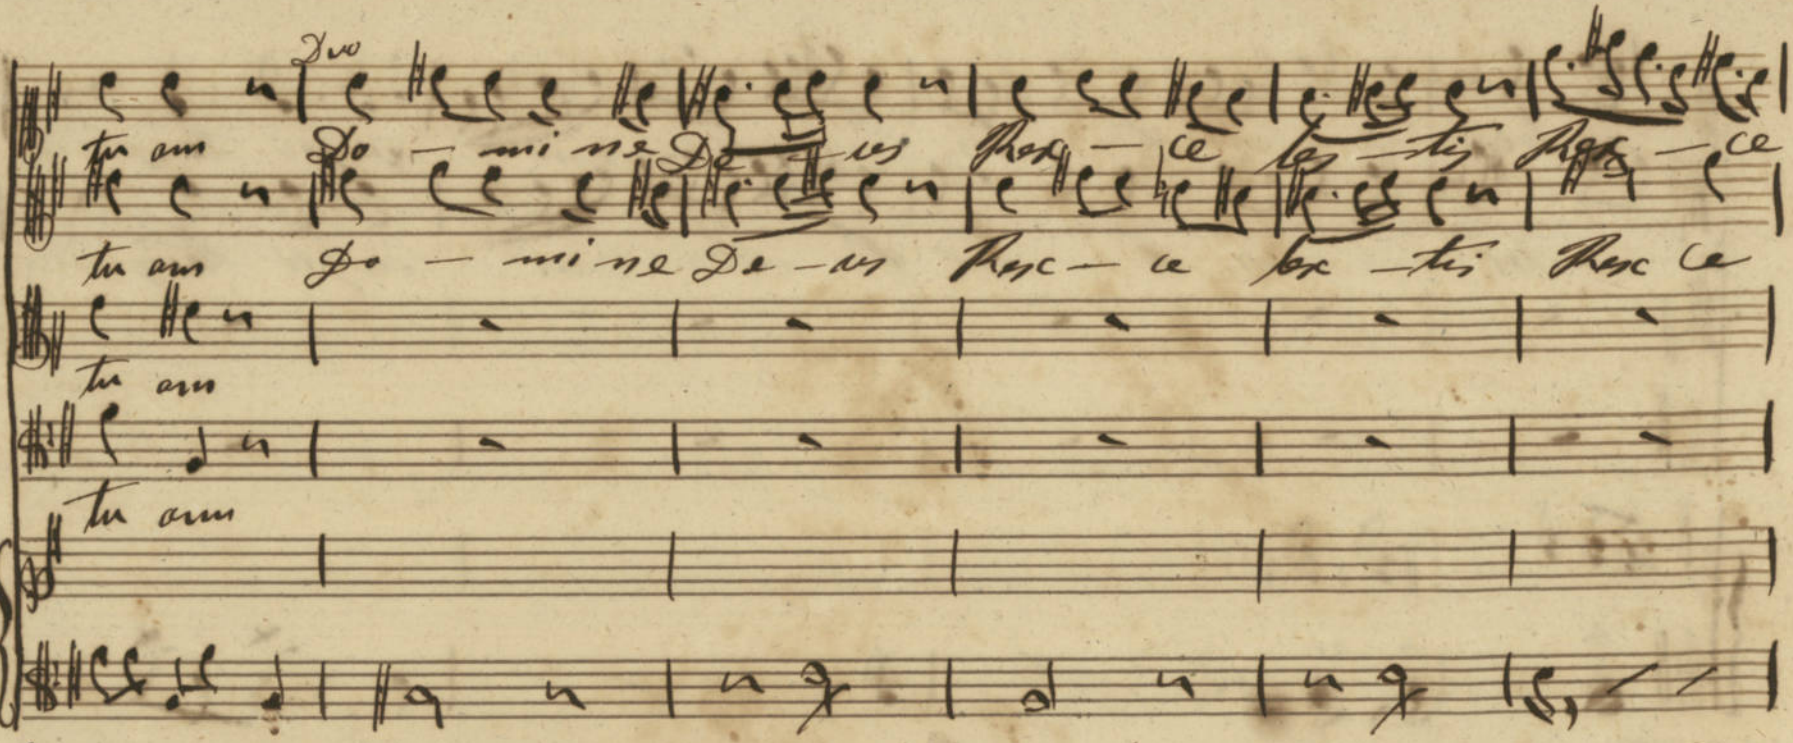 Duo
tu am Do - mi ne De - us Rex - ce les - tis Rex - ce
tu am Do - mi ne De - us Rex - ce les - tis Rex ce
tu am
tu am